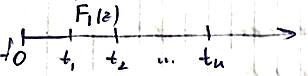 F₁(z)
0 t₁ t₂ ... tₙ